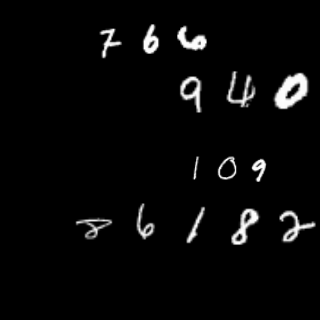 766
940
109
86182